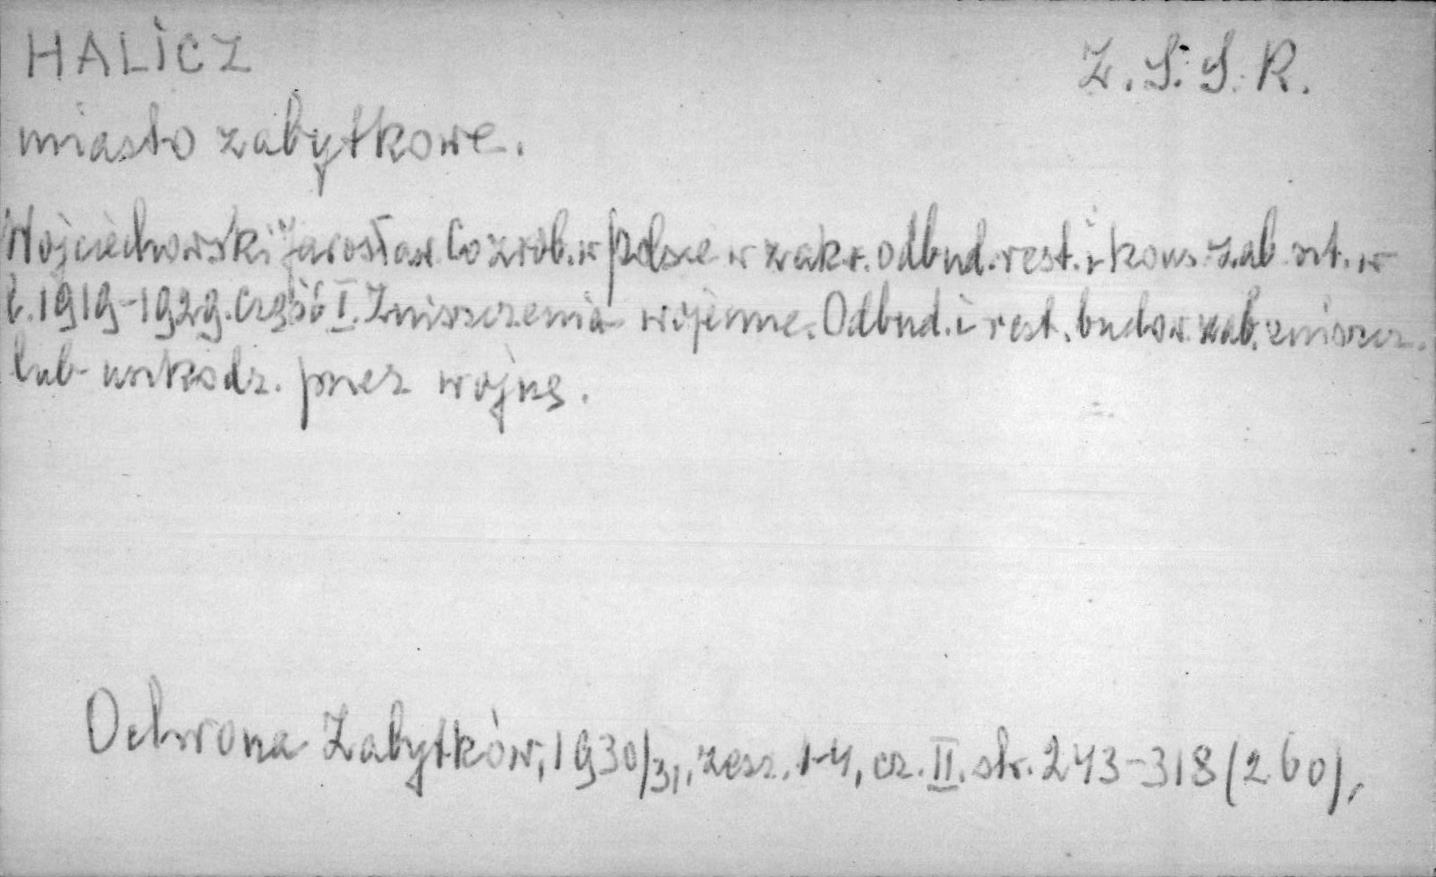 HALICZ Z.S.S.R.
miasto zabytkowe.
Wojciechowski Jarosław Co zrob. w Polsce w zakr. odbud. rest. i kons. zab. szt. w
l. 1919-1929. Część I. Zniszczenia wojenne. Odbud. i rest. budow. zab. zniszcz.
lub uszkodz. przez wojnę.
Ochrona Zabytków, 1930/31, zesz. 1-4, cz. II. str. 243-318 (260),